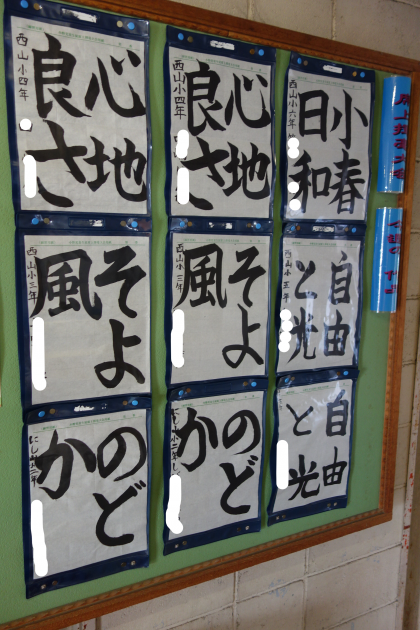 心地
良さ
西山小四年
心地
良さ
西山小四年
小春
日和
西山小六年
そよ
風
西山小三年
そよ
風
西山小三年
自由
と光
西山小五年
のど
か
のど
か
自由
と光